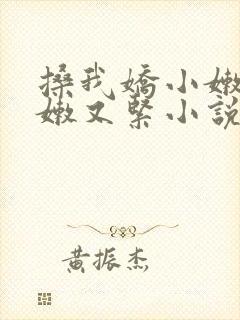 搡我嬌小嫩
嫩又緊小說
黄振杰